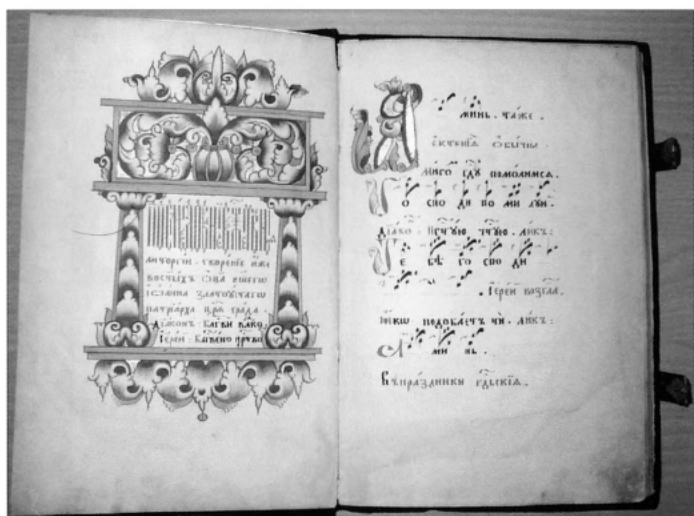 литоргїи · творенїе иже
во ст҃ыхъ ѻц҃а нш҃егѡ
іѡанна златоꙋстагѡ
патрїарха цр҃ѧ града ·
Дїаконъ · бл҃гви влⷣко
Іереи · бл҃гвено црⷭ҇тво
минь · та́же ·
ектенїа̀ обы́чны
миромъ гдⷭ҇ꙋ помолимсѧ ·
о спо ди по ми лꙋи ·
ли́къ :
е бѣ̀ го спо ди
Іереи возгла ·
ꙗ́кѡ подоба́етъ ти̑ · ли́къ :
А ми нь ·
Въ пра́здники гдⷭ҇скїѧ ·